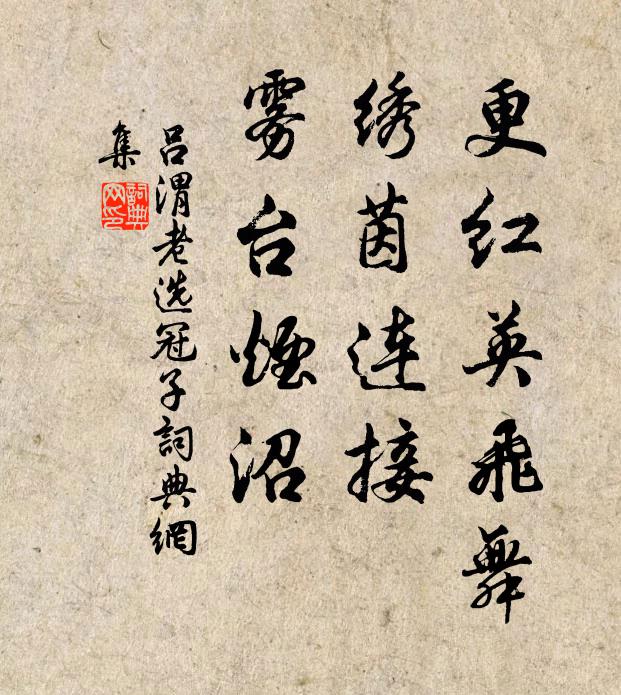 更红英飛舞
绣茵连接
雾台煙沼
吕渭老选冠子詞典網
集
詞典网印